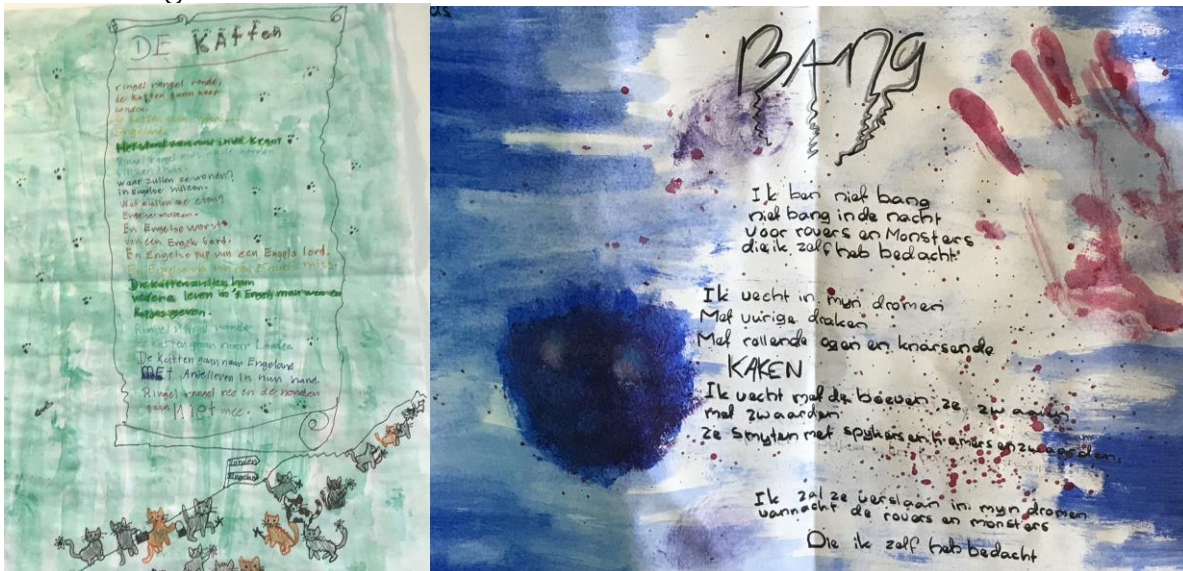 DE KATTEN
ringel rangel ronde,
de katten gaan naar
londen.
de katten gaan naar
Engeland.
Het stond van in de krant
Ringel rangel
waar zullen ze wonen?
in Engelse huizen.
Wat zullen ze eten?
Engelse muizen.
En Engelse worst
van een Engels bord.
En Engelse pap van een Engels lord.
En Engelse vis van een Engelse miss.
De katten zullen hun
leven in 't Engels
kopjes geven.
Ringel rangel ronde
de katten gaan naar Londen
De katten gaan naar Engeland
MET in hun hand
Ringel rangel ree en de honden
gaan Niet mee.
Londen
Engeland
BANG
Ik ben niet bang
niet bang in de nacht
voor rovers en Monsters
die ik zelf heb bedacht.
Ik vecht in myn dromen
Met vurige draken
Met rollende ogen en knarsende
KAKEN
Ik vecht met de boeven ze zwaaien
met zwaarden
Ze smyten met spykers en hamers en zwaarden.
Ik zal ze verslaan in myn dromen
vannacht de rovers en monsters
Die ik zelf heb bedacht